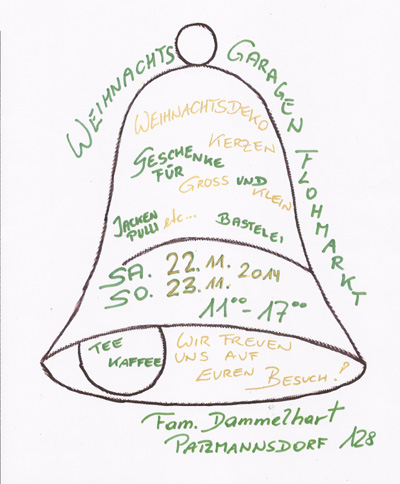 WEIHNACHTS GARAGEN FLOHMARKT
WEIHNACHTSDEKO
KERZEN
GESCHENKE
FÜR
GROSS UND KLEIN
JACKEN
PULLI etc... BASTELEI
SA. 22.11. 2014
SO. 23.11.
11⁰⁰-17⁰⁰
TEE
KAFFEE
WIR FREUEN
UNS AUF
EUREN
BESUCH!
Fam. Dammelhart
PATZMANNSDORF 128